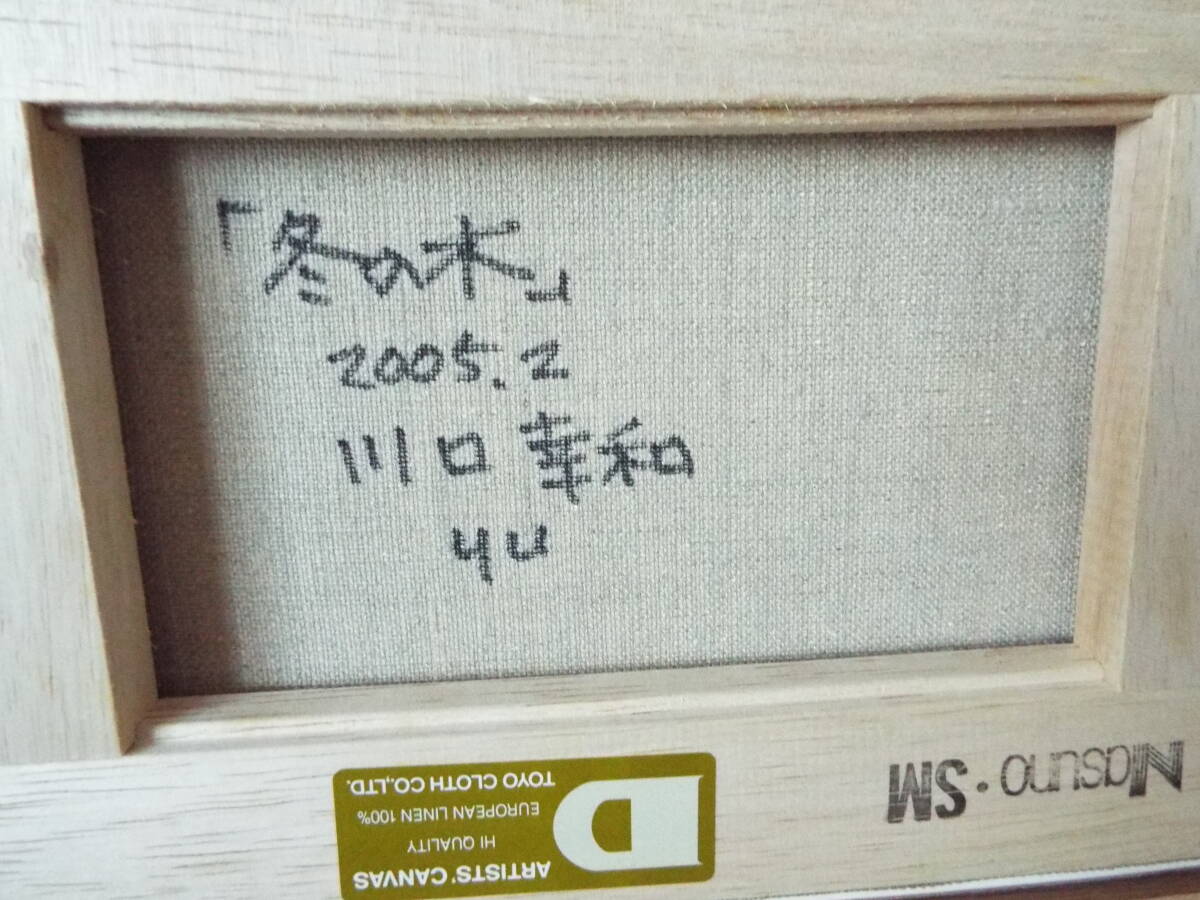 「冬の木」
2005.2
川口 幸和
yu
Masuno・SM
ARTISTS' CANVAS
HI QUALITY
EUROPEAN LINEN 100%
TOYO CLOTH CO.,LTD.
D